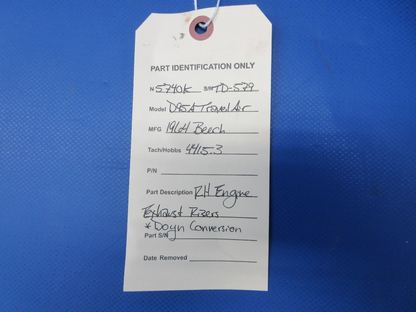 PART IDENTIFICATION ONLY
N 5740K S/N TD-579
Model D95A Travel Air
MFG 1964 Beech
Tach/Hobbs 4415.3
P/N
Part Description RH Engine
Exhaust Risers
* Doyn Conversion
Part S/N
Date Removed